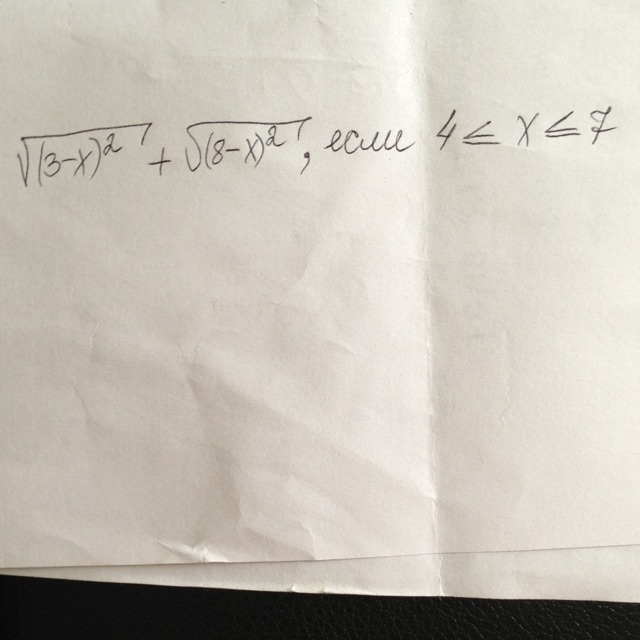 √(3-x)² + √(8-x)², если 4 ≤ x ≤ 7